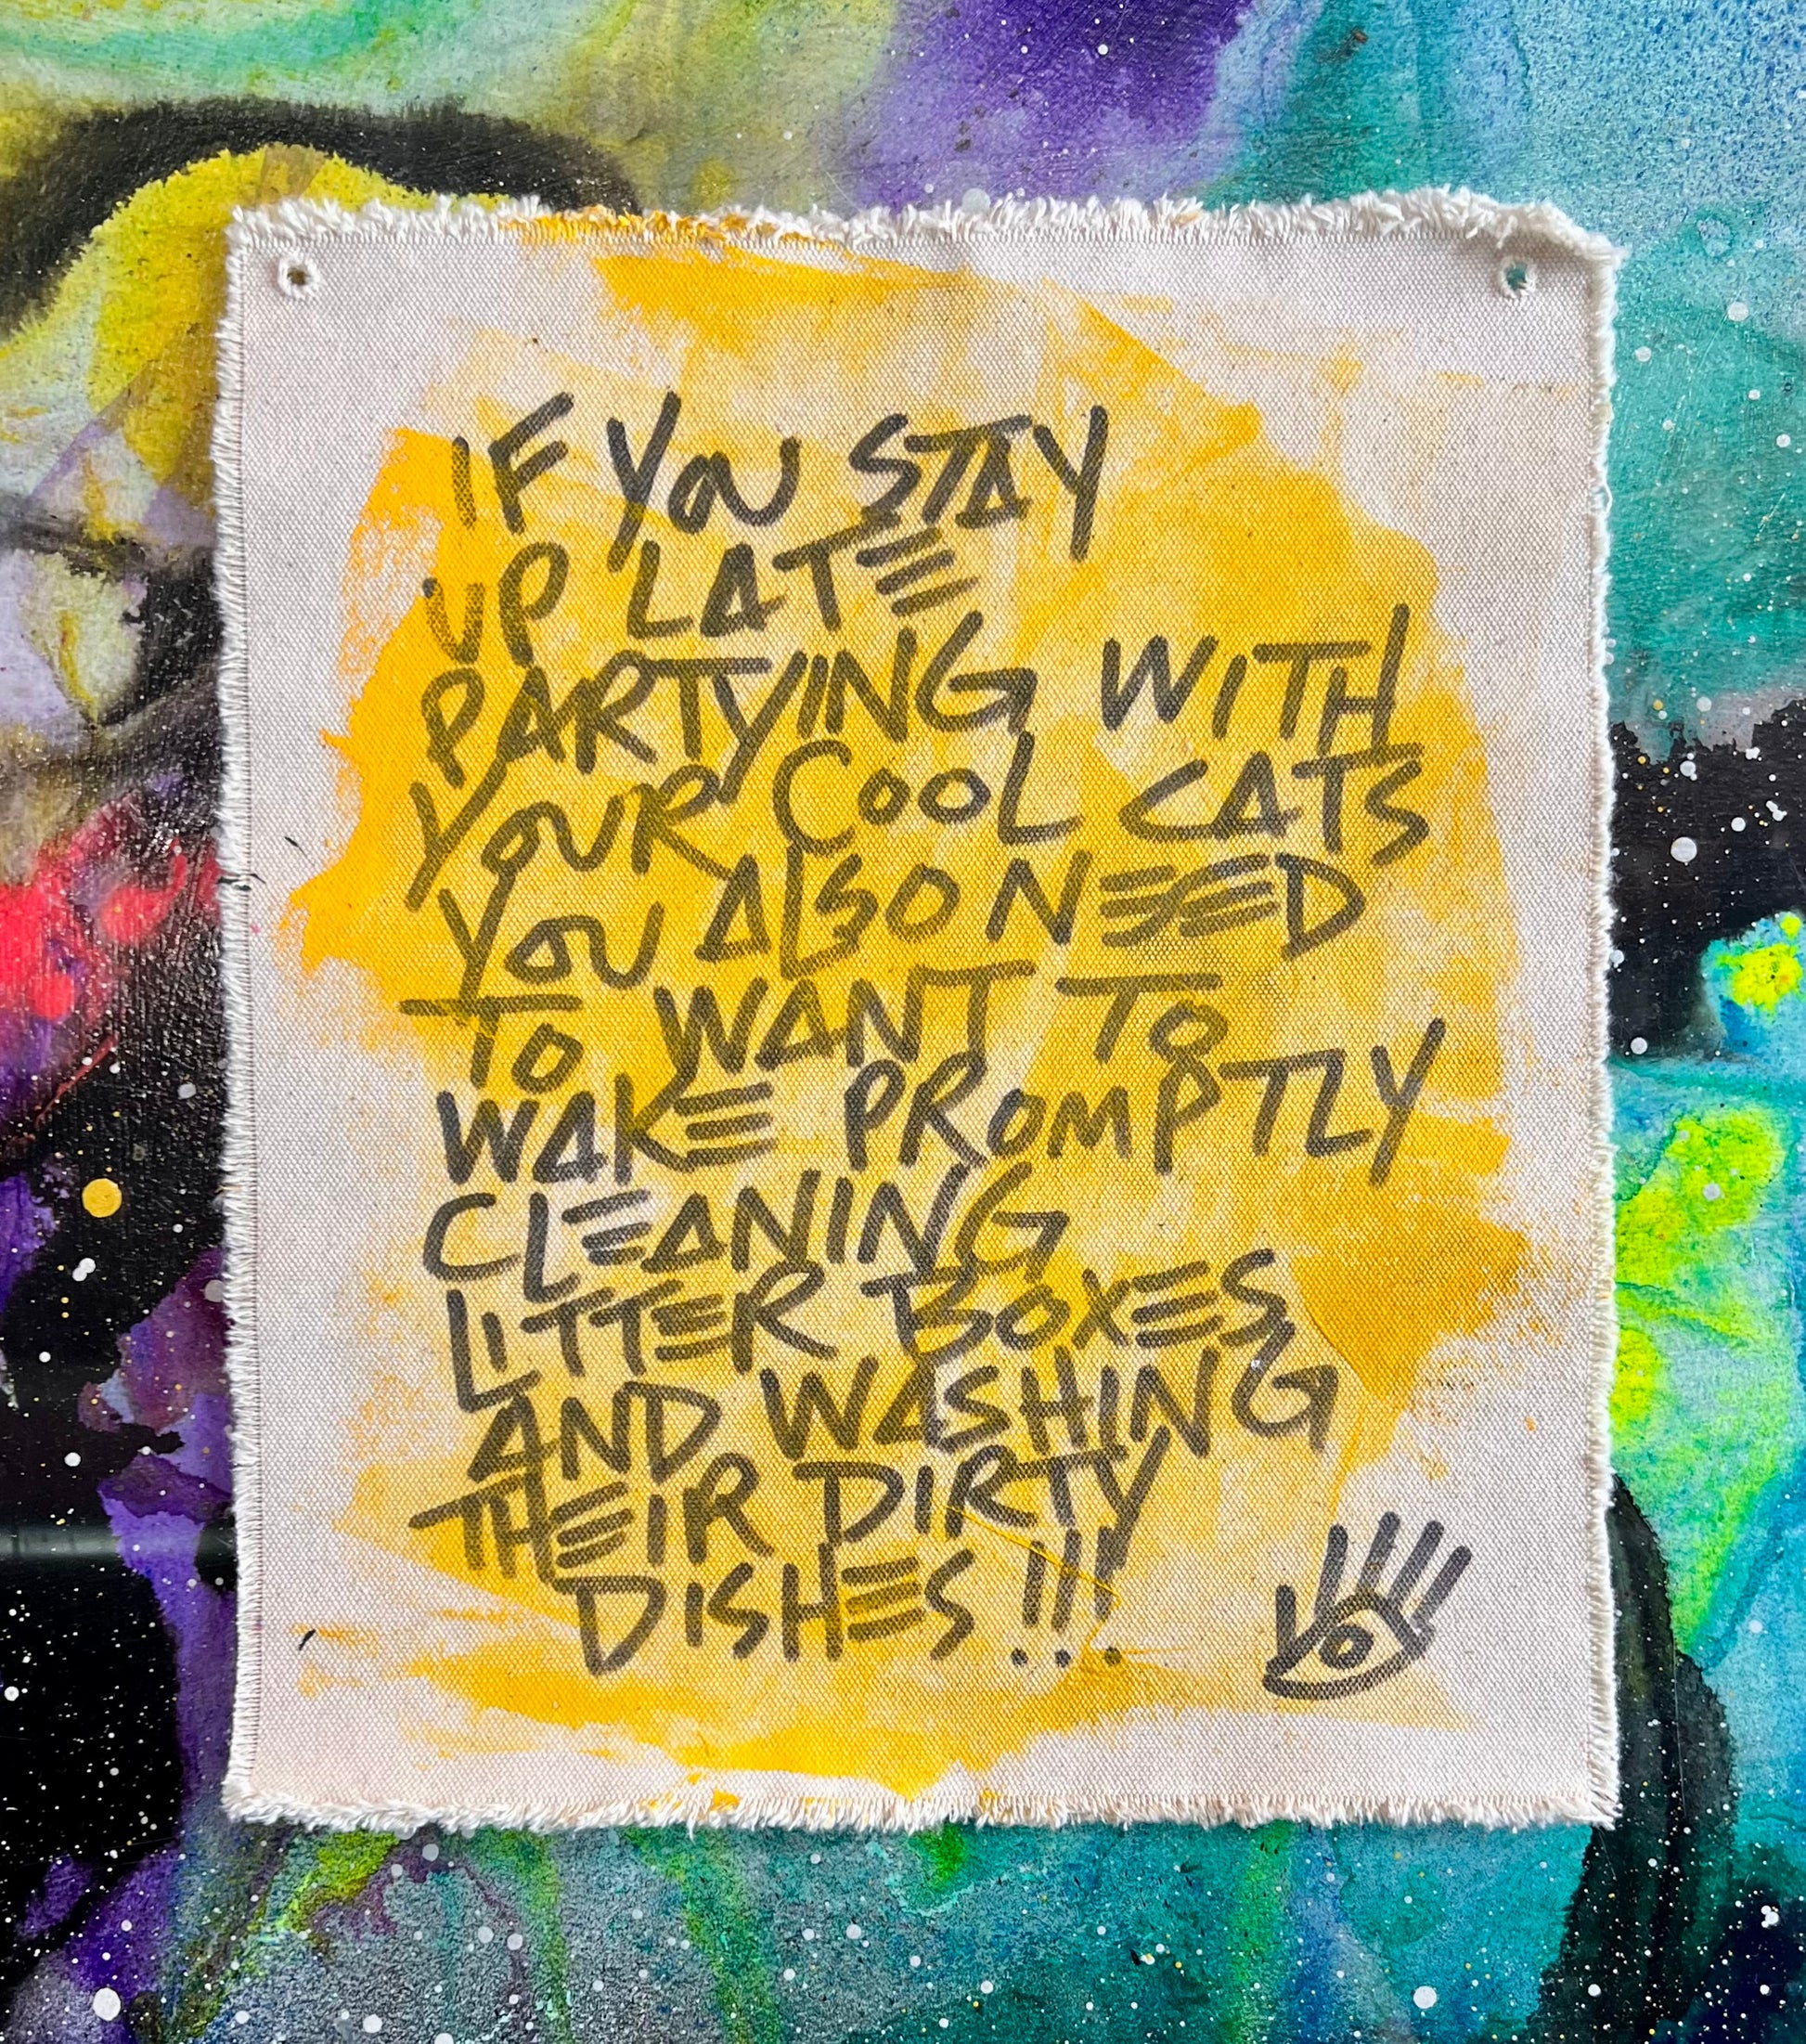 IF YOU STAY
UP LATE
PARTYING WITH
YOUR COOL CATS
YOU ALSO NEED
TO WANT TO
WAKE PROMPTLY
CLEANING
LITTER BOXES
AND WASHING
THEIR DIRTY
DISHES!!!